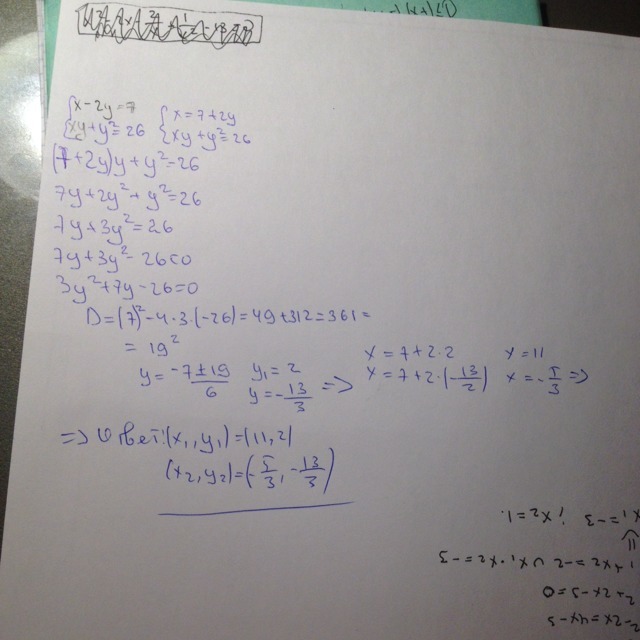 {x-2y=7 {x=7+2y
{xy+y²=26 {xy+y²=26
(7+2y)y+y²=26
7y+2y²+y²=26
7y+3y²=26
7y+3y²-26=0
3y²+7y-26=0
D=(7)²-4·3(-26)=49+312=361=
=19²
y=(-7±19)/6 y₁=2 y=-13/3 =>
x=7+2·2 x=11
x=7+2·(-13/2) x=-5/3 =>
=> Ответ:(x₁,y₁)=(11,2)
(x₂,y₂)=(-5/3,-13/3)